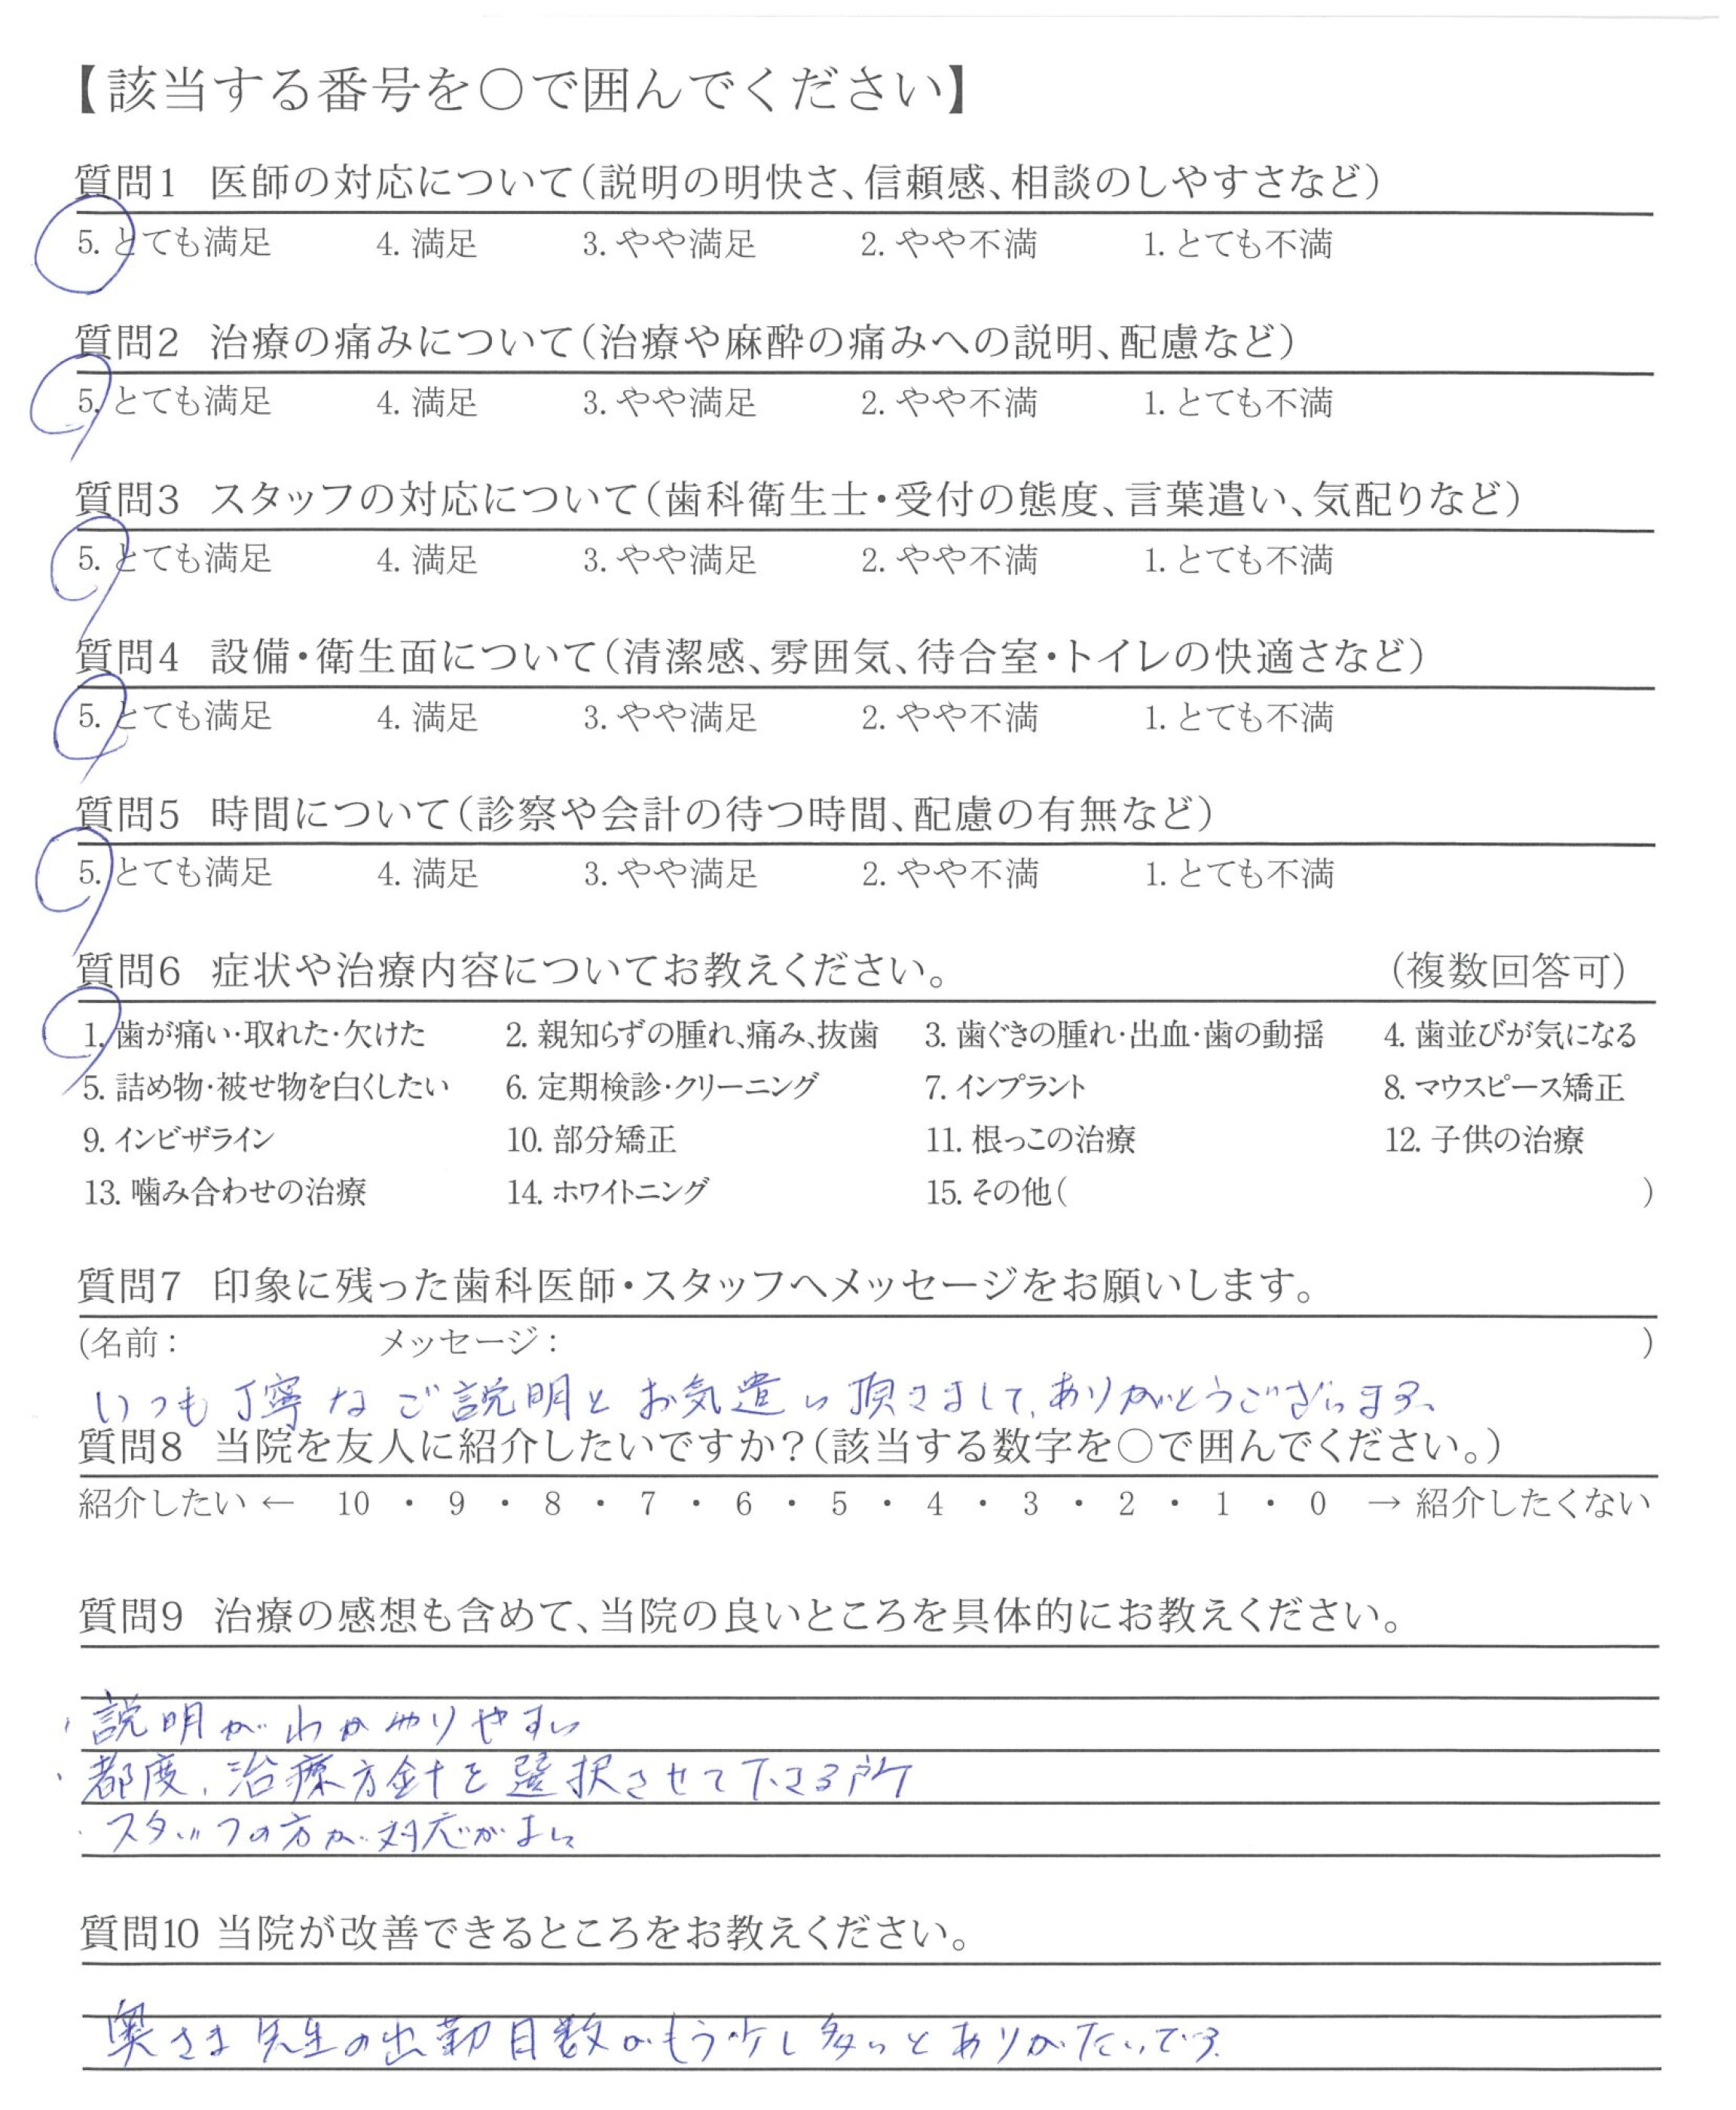 【該当する番号を〇で囲んでください】
質問1 医師の対応について(説明の明快さ、信頼感、相談のしやすさなど)
5. とても満足 4. 満足 3. やや満足 2. やや不満 1. とても不満
質問2 治療の痛みについて(治療や麻酔の痛みへの説明、配慮など)
5. とても満足 4. 満足 3. やや満足 2. やや不満 1. とても不満
質問3 スタッフの対応について(歯科衛生士・受付の態度、言葉遣い、気配りなど)
5. とても満足 4. 満足 3. やや満足 2. やや不満 1. とても不満
質問4 設備・衛生面について(清潔感、雰囲気、待合室・トイレの快適さなど)
5. とても満足 4. 満足 3. やや満足 2. やや不満 1. とても不満
質問5 時間について(診察や会計の待つ時間、配慮の有無など)
5. とても満足 4. 満足 3. やや満足 2. やや不満 1. とても不満
質問6 症状や治療内容についてお教えください。 (複数回答可)
1. 歯が痛い・取れた・欠けた 2. 親知らずの腫れ、痛み、抜歯 3. 歯ぐきの腫れ・出血・歯の動揺 4. 歯並びが気になる
5. 詰め物・被せ物を白くしたい 6. 定期検診・クリーニング 7. インプラント 8. マウスピース矯正
9. インビザライン 10. 部分矯正 11. 根っこの治療 12. 子供の治療
13. 噛み合わせの治療 14. ホワイトニング 15. その他( )
質問7 印象に残った歯科医師・スタッフへメッセージをお願いします。
(名前: メッセージ: )
いつも丁寧なご説明とお気遣い頂きまして、ありがとうございます。
質問8 当院を友人に紹介したいですか?(該当する数字を〇で囲んでください。)
紹介したい ← 10 ・ 9 ・ 8 ・ 7 ・ 6 ・ 5 ・ 4 ・ 3 ・ 2 ・ 1 ・ 0 → 紹介したくない
質問9 治療の感想も含めて、当院の良いところを具体的にお教えください。
・説明がわかりやすい
・都度、治療方針を選択させて下さる所
・スタッフの方が対応がよい
質問10 当院が改善できるところをお教えください。
奥さま先生の出勤日数がもう少し多いとありがたいです。